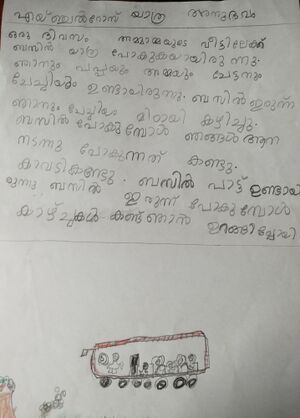 ഏയ്ഞ്ചൽറോസ് യാത്ര അനുഭവം
ഒരു ദിവസം അമ്മാമ്മയുടെ വീട്ടിലേക്ക്
ബസിൽ യാത്ര പോകുകയായിരുന്നു.
ഞാനും പപ്പയും അമ്മയും ചേട്ടനും
ചേച്ചിയും ഉണ്ടായിരുന്നു. ബസിൽ ഇരുന്ന്
ഞാനും ചേച്ചിയും മിഠായി കഴിച്ചു.
ബസിൽ പോകുമ്പോൾ ഞങ്ങൾ ആന
നടന്നു പോകുന്നത് കണ്ടു.
കാവടികണ്ടു. ബസിൽ പാട്ട് ഉണ്ടായി
രുന്നു ബസിൽ ഇരുന്ന് പോകുമ്പോൾ
കാഴ്ചകൾ കണ്ട് ഞാൻ ഉറങ്ങിപ്പോയി